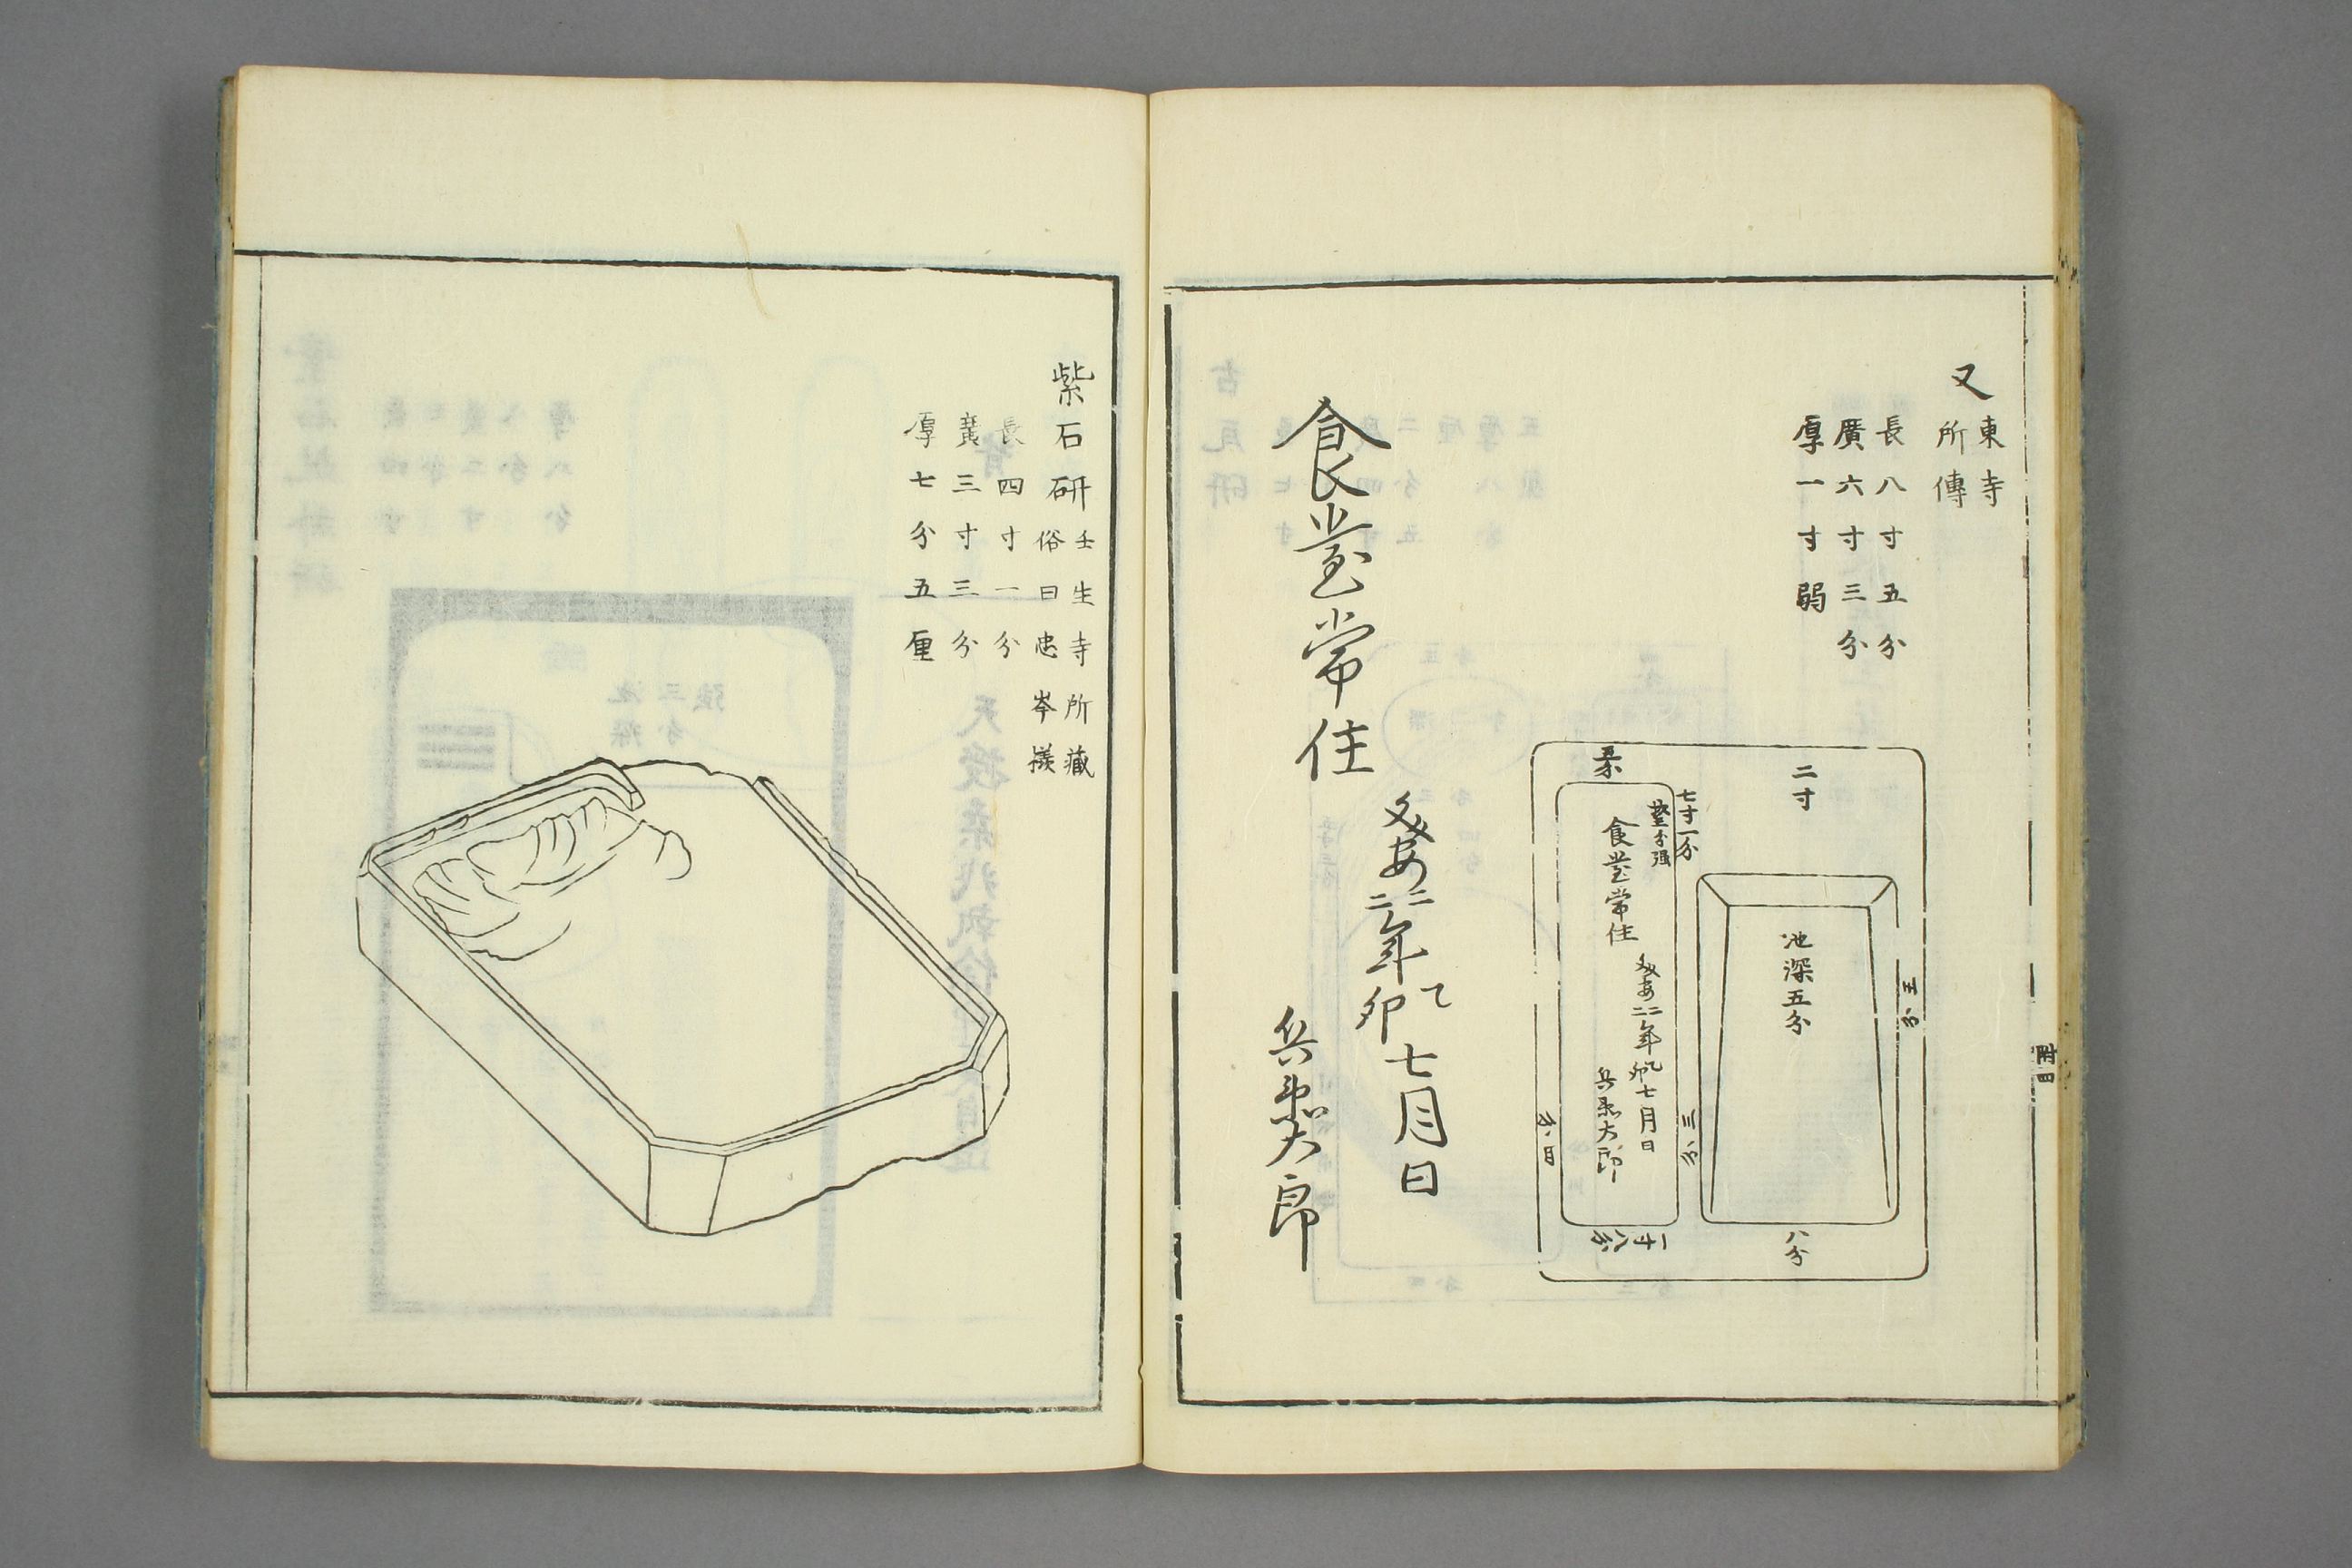 又
東寺
所傳
長八寸五分
廣六寸三分
厚一寸弱
二寸
池深五分
五分
八分
七寸一分
食堂常住
年乙卯七月日
兵衛太郎
三分
一寸八分
食堂常住
年乙卯七月日
兵衛太郎
附四
紫石研
壬生寺所藏
俗曰忠岑硯
長四寸一分
廣三寸三分
厚七分五厘